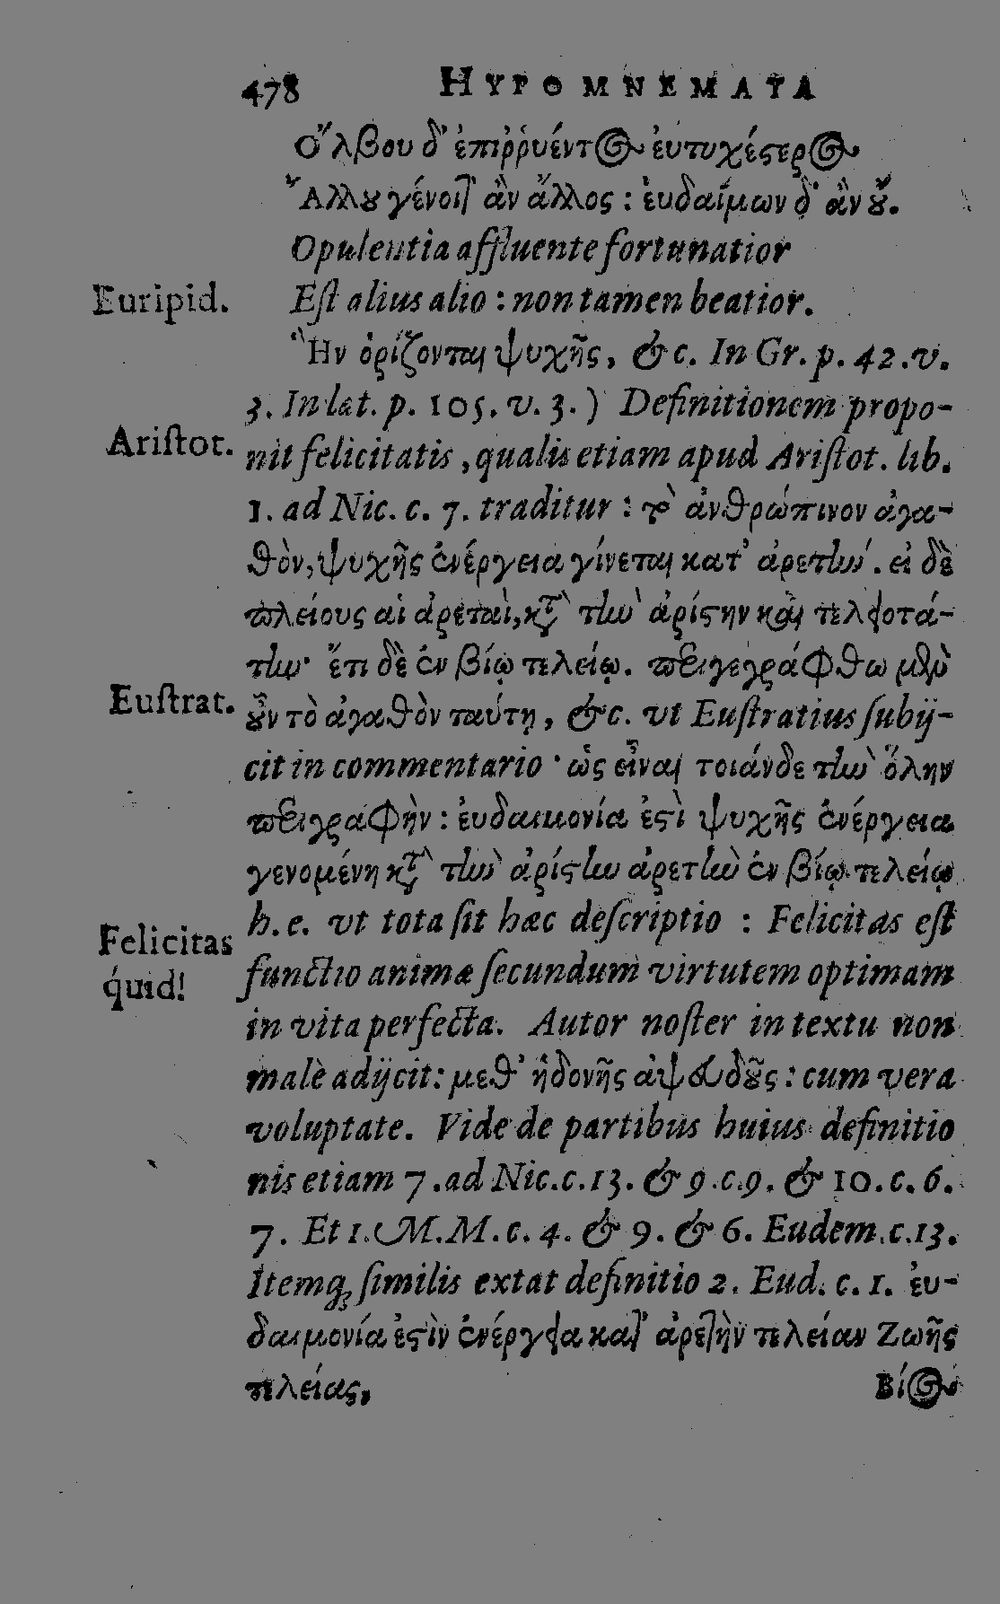 478 HYPOMNEMATA
Ὄλβου δ' ἐπιῤῥυέντος ἐυτυχέςερος
Ἄλλου γένοιτ' ἂν ἄλλος : ἐυδαίμων δ' ἂν οὔ.
Opulentia affluente fortunatior
Euripid. Eſt alius alio : non tamen beatior.
Ἣν ὁρίζονται ψυχῆς, &c. In Gr. p. 42. v.
3. In lat. p. 105. v. 3. ) Definitionem propo-
Ariſtot. nit felicitatis , qualis etiam apud Ariſtot. lib.
1. ad Nic. c. 7. traditur : τὸ ἀνθρώπινον ἀγα-
θὸν, ψυχῆς ἐνέργεια γίνεται κατ' ἀρετὴν . εἰ δὲ
πλείους αἱ ἀρεταὶ, κατὰ τὴν ἀρίςην καὶ τελειοτά-
την· ἔτι δὲ ἐν βίῳ τελείῳ. περιγεγράφθω μὲν
Euſtrat. οὖν τὸ ἀγαθὸν ταύτῃ , &c. vt Euſtratius ſubij-
cit in commentario · ὡς εἶναι τοιάνδε τὴν ὅλην
περιγραφὴν : ἐυδαιμονία ἐςὶ ψυχῆς ἐνέργεια
γενομένη κατὰ τὴν ἀρίςην ἀρετὴν ἐν βίῳ τελείῳ
h. e. vt tota ſit hæc deſcriptio : Felicitas eſt
Felicitas quid! functio animæ ſecundum virtutem optimam
in vita perfecta. Autor noſter in textu non
malè adijcit: μεθ' ἡδονῆς ἀψευδοῦς : cum vera
voluptate. Vide de partibus huius definitio
nis etiam 7. ad Nic. c. 13. & 9. c. 9. & 10. c. 6.
7. Et 1. M. M. c. 4. & 9. & 6. Eudem. c. 13.
Itemq; ſimilis extat definitio 2. Eud. c. 1. ἐυ-
δαιμονία ἐςὶν ἐνέργεια κατ' ἀρετὴν τελείαν ζωῆς
τελείας,
Βίος